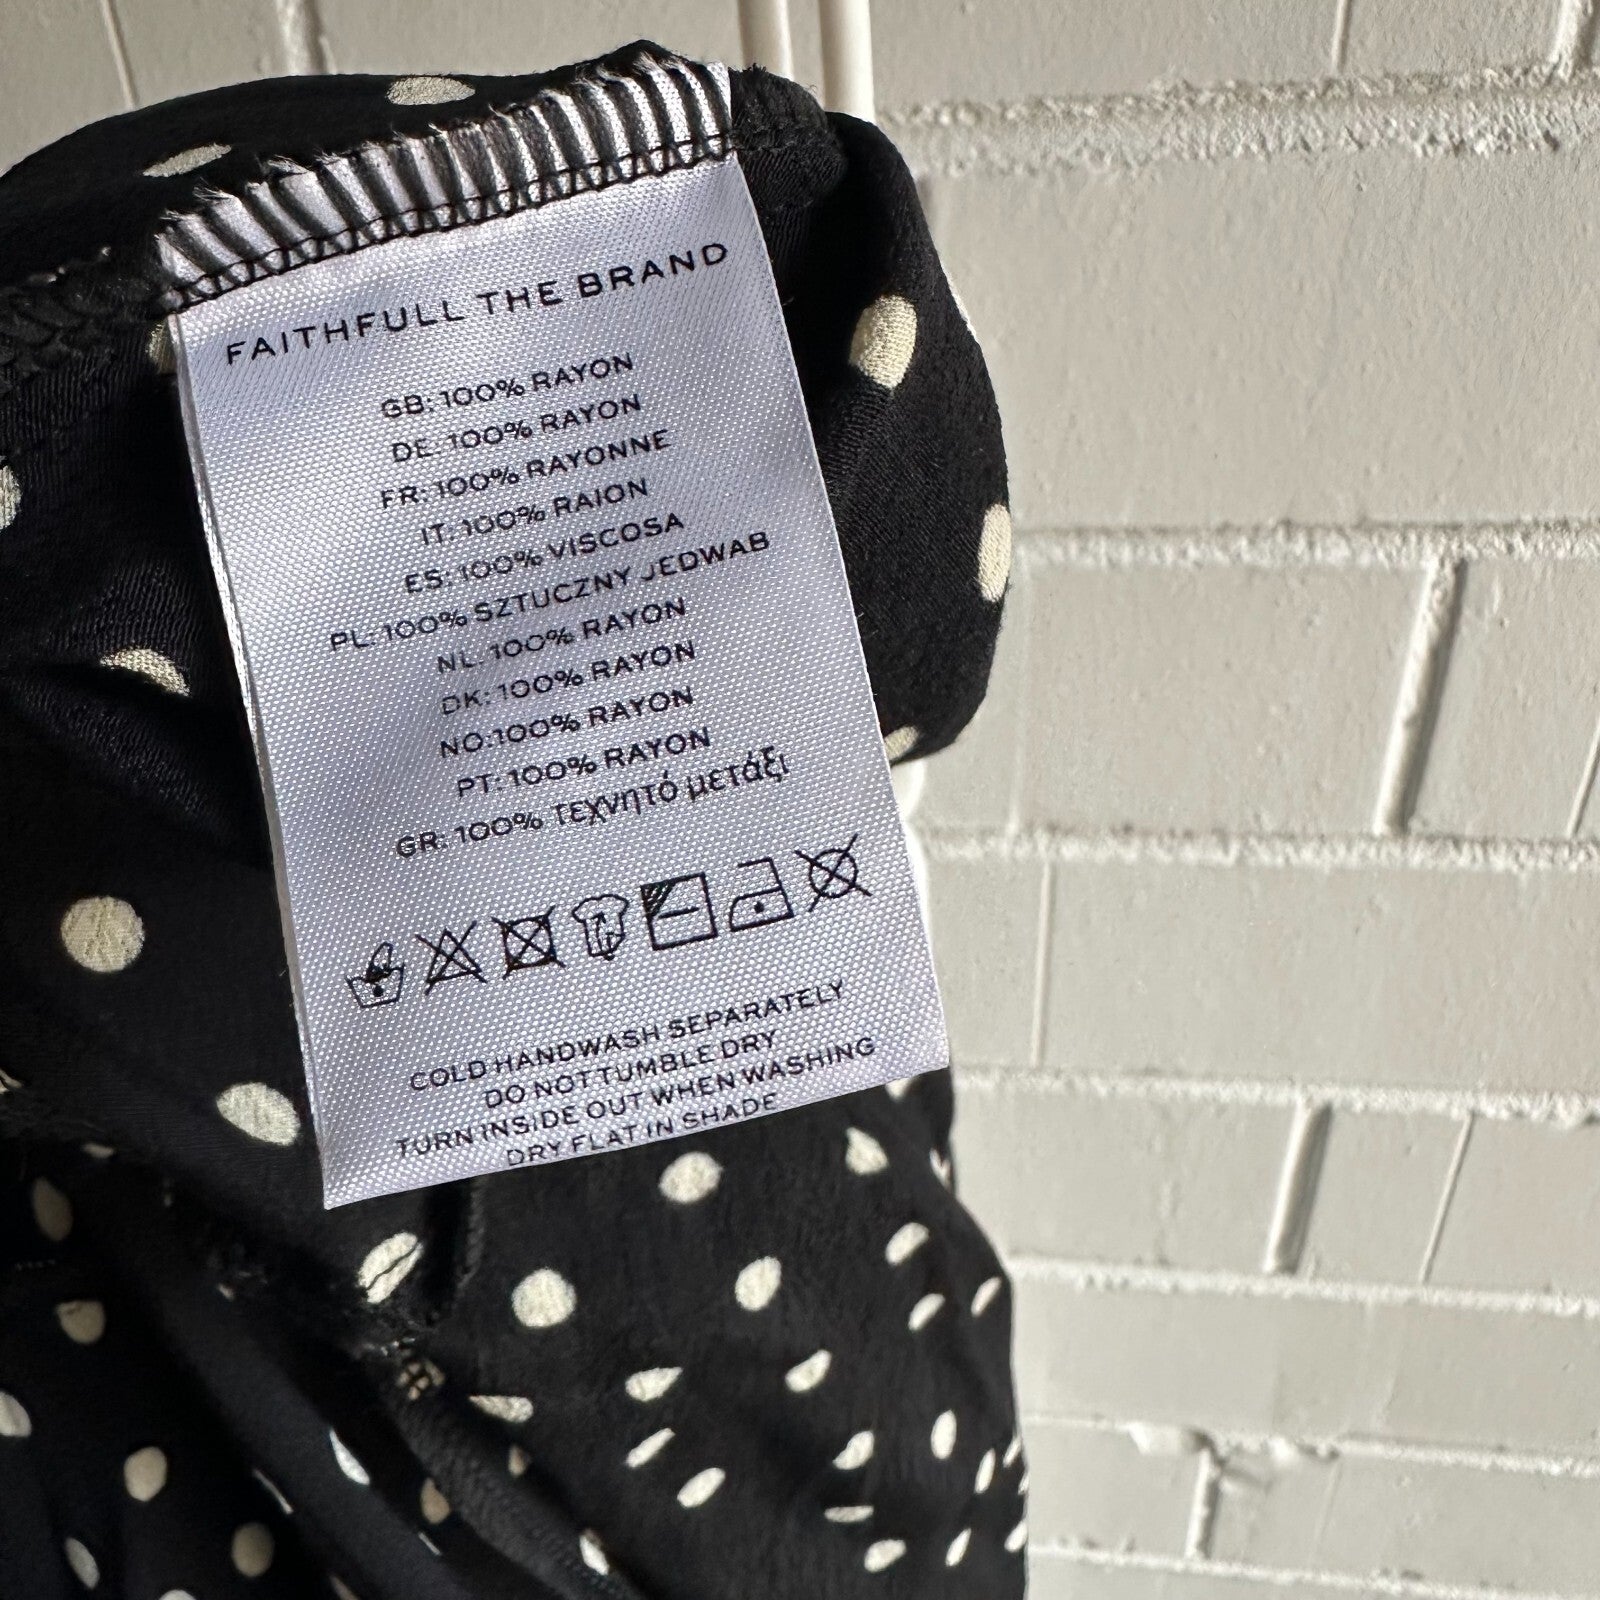 FAITHFULL THE BRAND
GB: 100% RAYON
DE: 100% RAYON
FR: 100% RAYONNE
IT: 100% RAION
ES: 100% VISCOSA
PL: 100% SZTUCZNY JEDWAB
NL: 100% RAYON
DK: 100% RAYON
NO:100% RAYON
PT: 100% RAYON
GR: 100% τεχνητό μετάξι
COLD HANDWASH SEPARATELY
DO NOT TUMBLE DRY
TURN INSIDE OUT WHEN WASHING
DRY FLAT IN SHADE